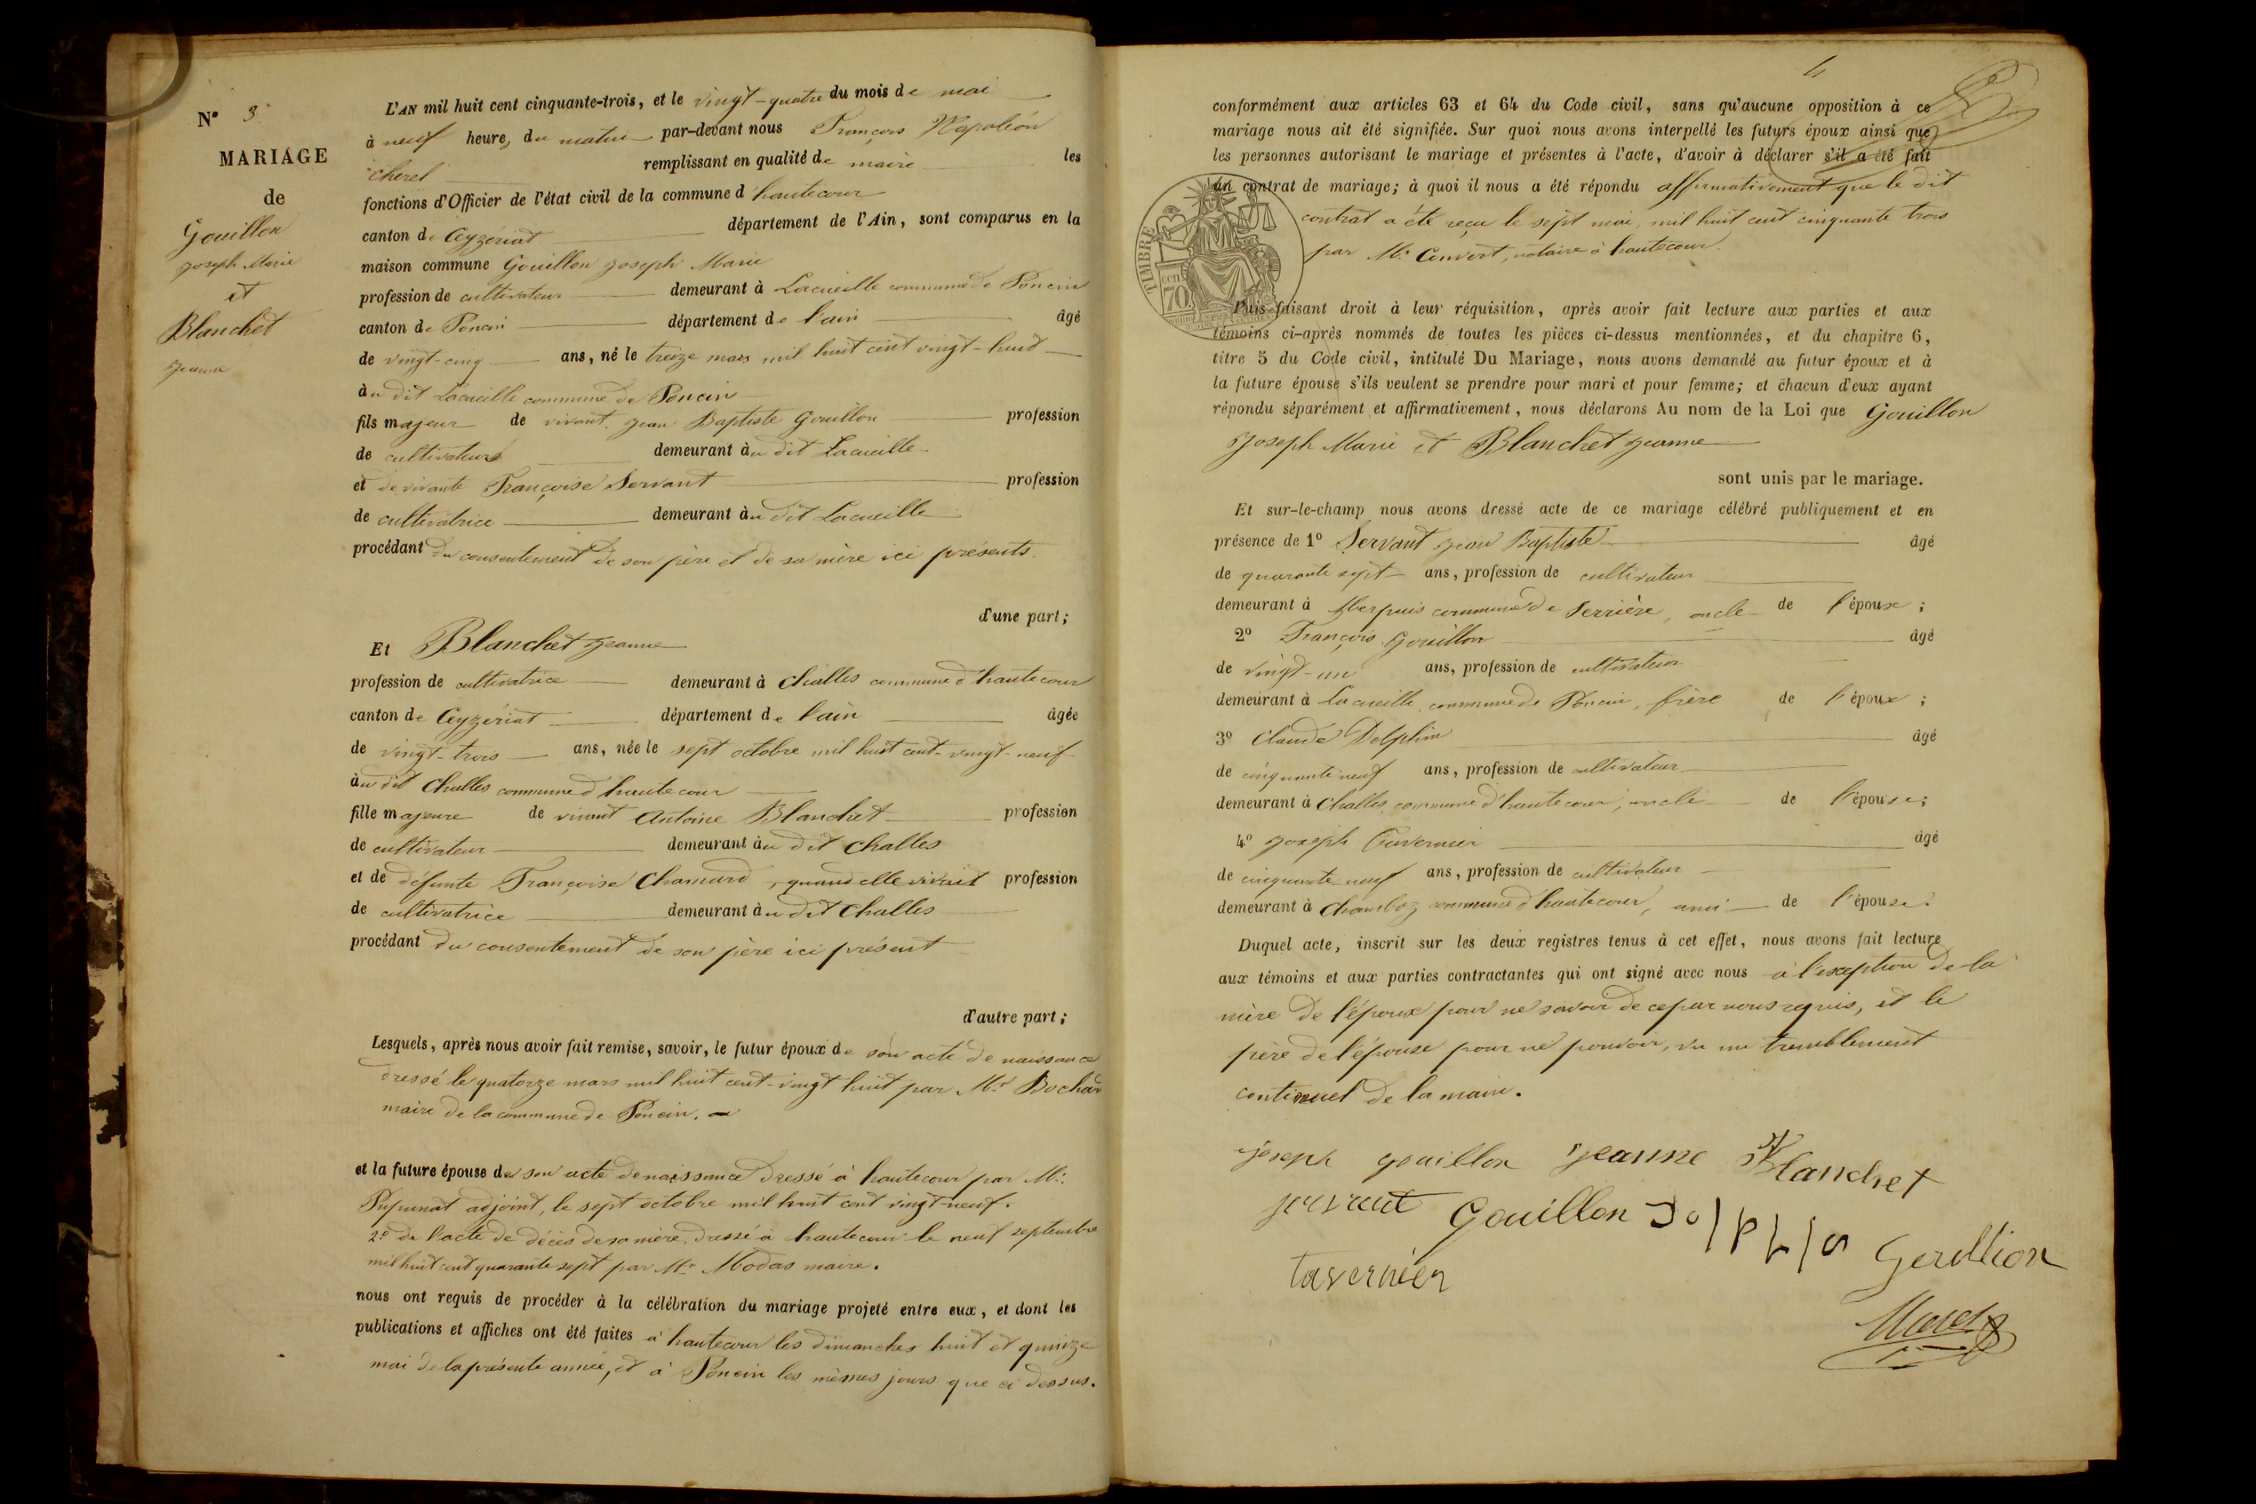 N° 3
MARIAGE
de
Gouillon
Joseph Marie
et
Blanchet
Jeanne
L'AN mil huit cent cinquante-trois, et le vingt-quatre du mois de mai
à neuf heure, du matin par-devant nous François Napoléon
remplissant en qualité de maire les
fonctions d'Officier de l'état civil de la commune d'hautecour
canton de Ceyzériat département de l'Ain, sont comparus en la
maison commune Gouillon Joseph Marie
profession de cultivateur demeurant à Lacueille commune de Poncin
canton de Poncin département de l'ain âgé
de vingt-cinq ans, né le treize mars mil huit cent vingt-huit
àu dit Lacueille commune de Poncin
fils majeur de vivant Jean Baptiste Gouillon profession
de cultivateur demeurant àu dit Lacueille
et de vivante Françoise Servant profession
de cultivatrice demeurant àu dit Lacueille
procédant du consentement de son père et de sa mère ici présents.
d'une part;
Et Blanchet Jeanne
profession de cultivatrice demeurant à Challes commune d'hautecour
canton de Ceyzériat département de l'ain âgée
de vingt-trois ans, née le sept octobre mil huit cent-vingt-neuf
àu dit Challes commune d'hautecour
fille majeure de vivant Antoine Blanchet profession
de cultivateur demeurant àu dit Challes
et de défunte Françoise Chamard, quand elle vivait profession
de cultivatrice demeurant àu dit Challes
procédant du consentement de son père ici présent
d'autre part;
Lesquels, après nous avoir fait remise, savoir, le futur époux de son acte de naissance
dressé le quatorze mars mil huit cent-vingt huit par Mr Bochard
maire de la commune de Poncin.
et la future épouse de son acte de naissance dressé à hautecour par Mr
adjoint, le sept octobre mil huit cent vingt-neuf.
2° de l'acte de décès de sa mère, dressé à hautecour le neuf septembre
mil huit cent quarante sept par Mr Modas maire.
nous ont requis de procéder à la célébration du mariage projeté entre eux, et dont les
publications et affiches ont été faites à hautecour les dimanches huit et quinze
mai de la présente année, et à Poncin les mêmes jours que ci dessus.
4
conformément aux articles 63 et 64 du Code civil, sans qu'aucune opposition à ce
mariage nous ait été signifiée. Sur quoi nous avons interpellé les futurs époux ainsi que
les personnes autorisant le mariage et présentes à l'acte, d'avoir à déclarer s'il a été fait
un contrat de mariage; à quoi il nous a été répondu affirmativement que le dit
contrat a été reçu le sept mai, mil huit cent cinquante trois
par Me Convert, notaire à hautecour.
TIMBRE
70
Puis faisant droit à leur réquisition, après avoir fait lecture aux parties et aux
témoins ci-après nommés de toutes les pièces ci-dessus mentionnées, et du chapitre 6,
titre 5 du Code civil, intitulé Du Mariage, nous avons demandé au futur époux et à
la future épouse s'ils veulent se prendre pour mari et pour femme; et chacun d'eux ayant
répondu séparément et affirmativement, nous déclarons Au nom de la Loi que Gouillon
Joseph Marie et Blanchet Jeanne
sont unis par le mariage.
Et sur-le-champ nous avons dressé acte de ce mariage célébré publiquement et en
présence de 1° Servant Jean Baptiste âgé
de quarante sept ans, profession de cultivateur
demeurant à commune de Serrière, oncle de l'époux;
2° François Gouillon âgé
de vingt-un ans, profession de cultivateur
demeurant à Lacueille, commune de Poncin, frère de l'époux;
3° Claude Delphin âgé
de cinquante neuf ans, profession de cultivateur
demeurant à Challes, commune d'hautecour, oncle de l'épouse;
4° Joseph Tavernier âgé
de cinquante neuf ans, profession de cultivateur
demeurant à Chamboz commune d'hautecour, ami de l'épouse.
Duquel acte, inscrit sur les deux registres tenus à cet effet, nous avons fait lecture
aux témoins et aux parties contractantes qui ont signé avec nous à l'exception de la
mère de l'époux pour ne savoir de ce par nous requis, et le
père de l'épouse pour ne pouvoir, vu un tremblement
continuel de la main.
joseph gouillon jeanne Blanchet
servant Gouillon
tavernier